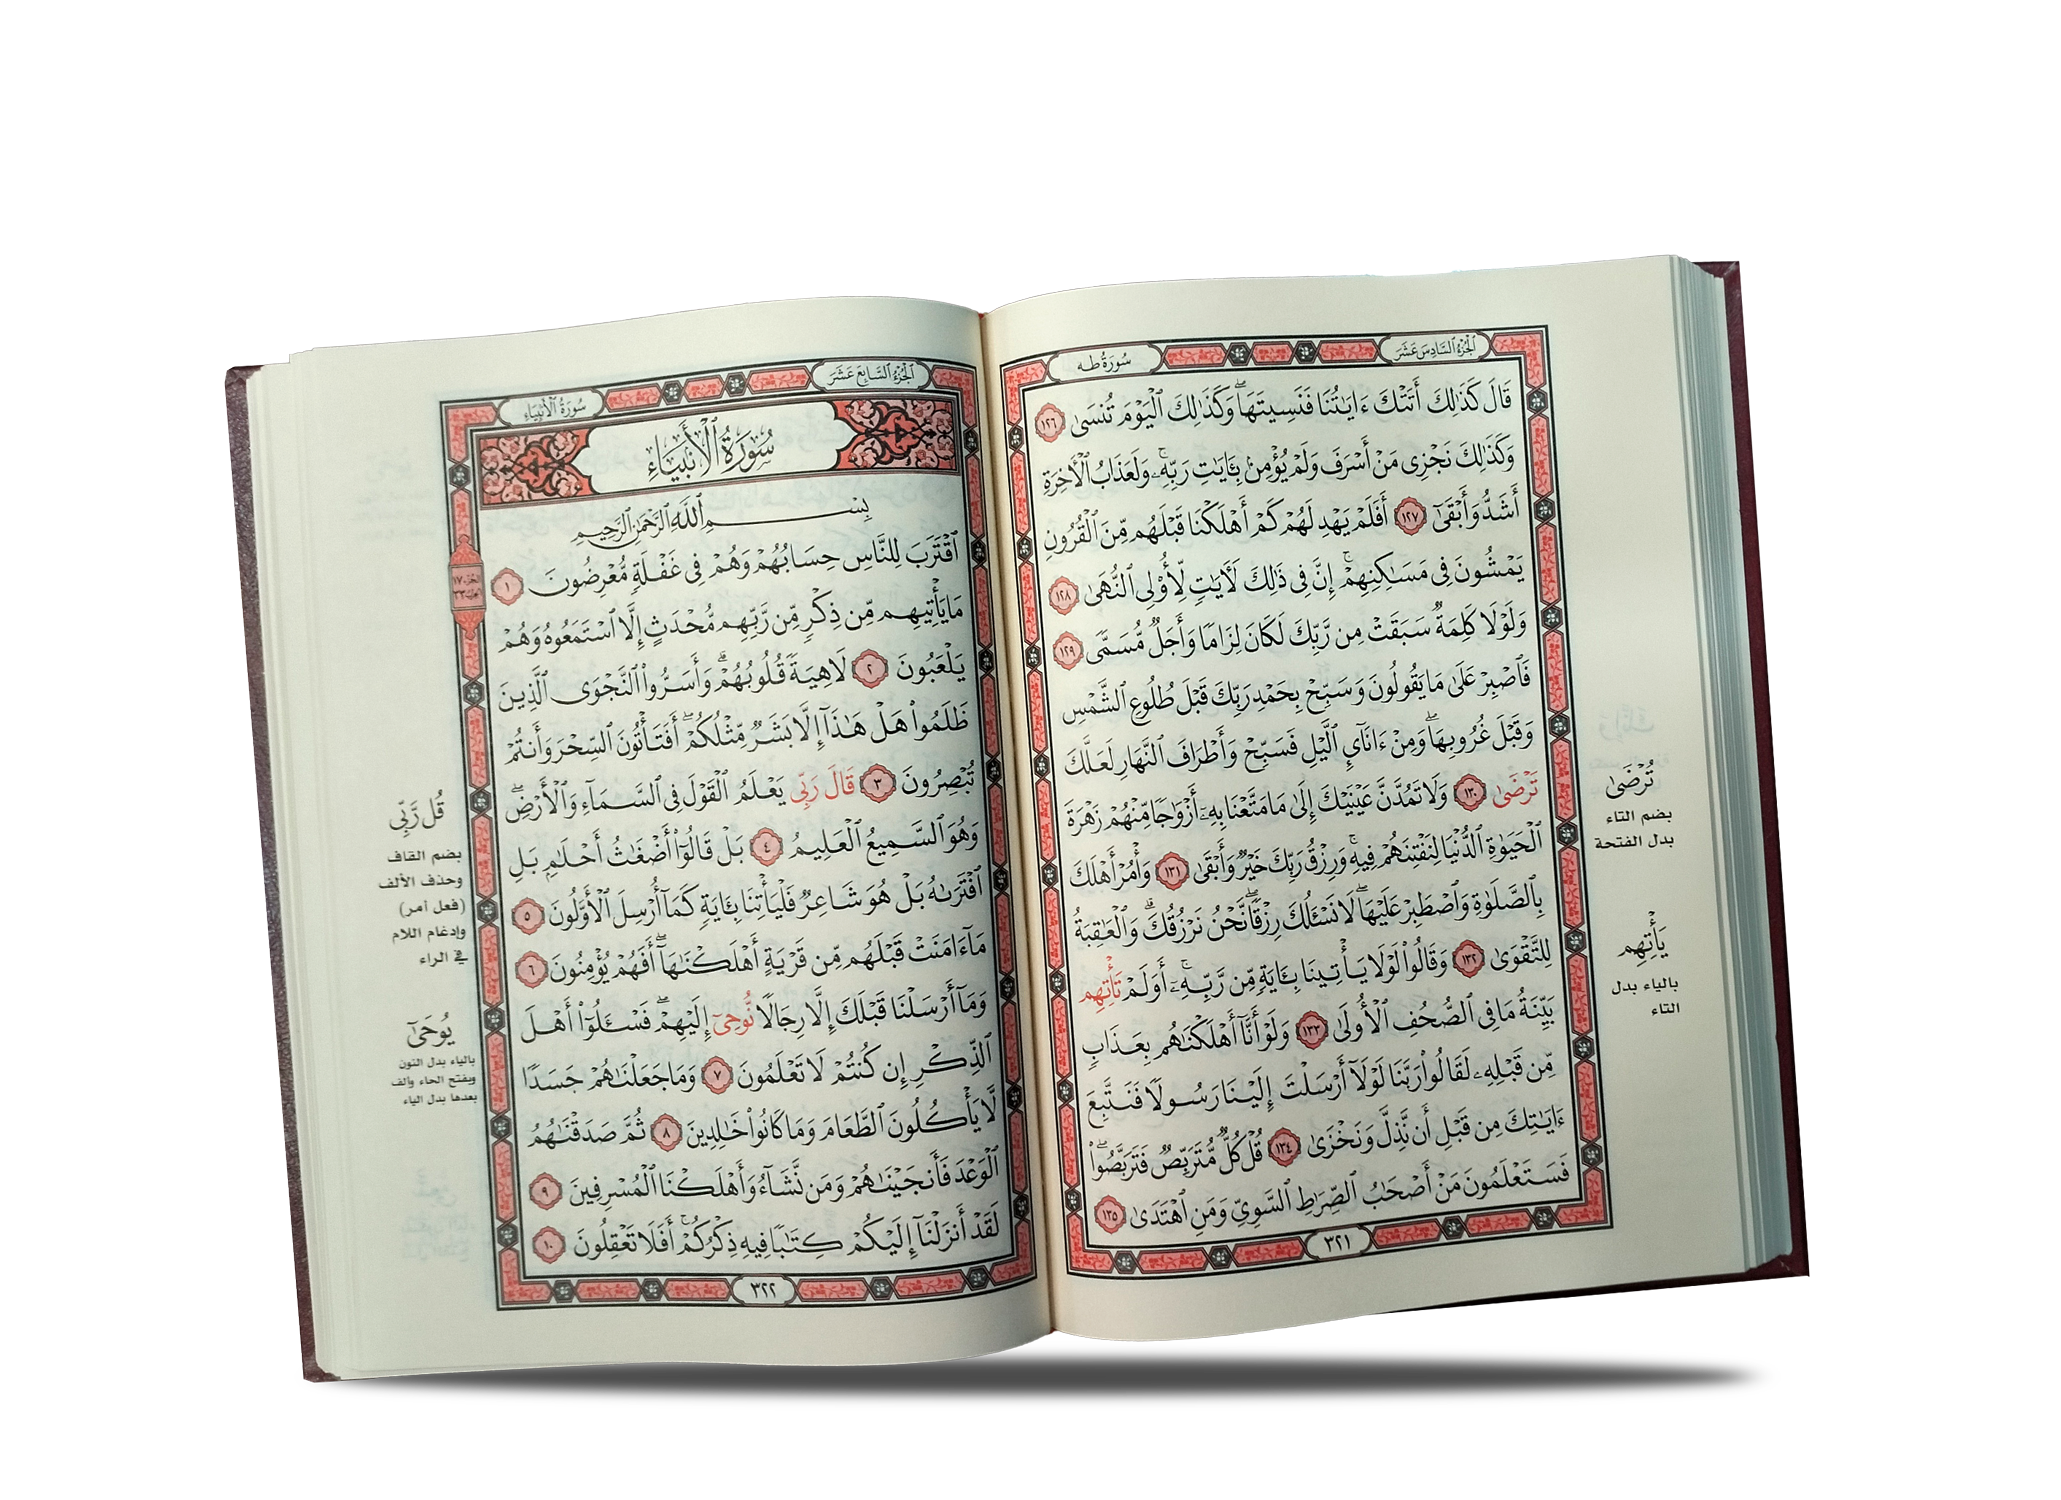 الجزء السادس عشر
سورة طه
قَالَ كَذَٰلِكَ أَتَتْكَ ءَايَٰتُنَا فَنَسِيتَهَا ۖ وَكَذَٰلِكَ ٱلْيَوْمَ تُنسَىٰ ١٢٦
وَكَذَٰلِكَ نَجْزِى مَنْ أَسْرَفَ وَلَمْ يُؤْمِنۢ بِـَٔايَٰتِ رَبِّهِۦ ۚ وَلَعَذَابُ ٱلْأَخِرَةِ
أَشَدُّ وَأَبْقَىٰٓ ١٢٧ أَفَلَمْ يَهْدِ لَهُمْ كَمْ أَهْلَكْنَا قَبْلَهُم مِّنَ ٱلْقُرُونِ
يَمْشُونَ فِى مَسَٰكِنِهِمْ ۗ إِنَّ فِى ذَٰلِكَ لَأَيَٰتٍ لِّأُو۟لِى ٱلنُّهَىٰ ١٢٨
وَلَوْلَا كَلِمَةٌ سَبَقَتْ مِن رَّبِّكَ لَكَانَ لِزَامًا وَأَجَلٌ مُّسَمًّى ١٢٩
فَٱصْبِرْ عَلَىٰ مَا يَقُولُونَ وَسَبِّحْ بِحَمْدِ رَبِّكَ قَبْلَ طُلُوعِ ٱلشَّمْسِ
وَقَبْلَ غُرُوبِهَا ۖ وَمِنْ ءَانَآئِ ٱلَّيْلِ فَسَبِّحْ وَأَطْرَافَ ٱلنَّهَارِ لَعَلَّكَ
تَرْضَىٰ ١٣٠ وَلَا تَمُدَّنَّ عَيْنَيْكَ إِلَىٰ مَا مَتَّعْنَا بِهِۦٓ أَزْوَٰجًا مِّنْهُمْ زَهْرَةَ
ٱلْحَيَوٰةِ ٱلدُّنْيَا لِنَفْتِنَهُمْ فِيهِ ۚ وَرِزْقُ رَبِّكَ خَيْرٌ وَأَبْقَىٰ ١٣١ وَأْمُرْ أَهْلَكَ
بِٱلصَّلَوٰةِ وَٱصْطَبِرْ عَلَيْهَا ۖ لَا نَسْـَٔلُكَ رِزْقًا ۖ نَّحْنُ نَرْزُقُكَ ۗ وَٱلْعَٰقِبَةُ
لِلتَّقْوَىٰ ١٣٢ وَقَالُوا۟ لَوْلَا يَأْتِينَا بِـَٔايَةٍ مِّن رَّبِّهِۦٓ ۚ أَوَلَمْ تَأْتِهِم
بَيِّنَةُ مَا فِى ٱلصُّحُفِ ٱلْأُولَىٰ ١٣٣ وَلَوْ أَنَّآ أَهْلَكْنَٰهُم بِعَذَابٍ
مِّن قَبْلِهِۦ لَقَالُوا۟ رَبَّنَا لَوْلَآ أَرْسَلْتَ إِلَيْنَا رَسُولًا فَنَتَّبِعَ
ءَايَٰتِكَ مِن قَبْلِ أَن نَّذِلَّ وَنَخْزَىٰ ١٣٤ قُلْ كُلٌّ مُّتَرَبِّصٌ فَتَرَبَّصُوا۟ ۖ
فَسَتَعْلَمُونَ مَنْ أَصْحَٰبُ ٱلصِّرَٰطِ ٱلسَّوِىِّ وَمَنِ ٱهْتَدَىٰ ١٣٥
٣٢١
تُرْضَىٰ
بضم التاء
بدل الفتحة
يَأْتِهِم
بالياء بدل
التاء
الجزء السابع عشر
سورة الأنبياء
سُورَةُ ٱلْأَنبِيَاءِ
بِسْمِ ٱللَّهِ ٱلرَّحْمَٰنِ ٱلرَّحِيمِ
ٱقْتَرَبَ لِلنَّاسِ حِسَابُهُمْ وَهُمْ فِى غَفْلَةٍ مُّعْرِضُونَ ١
مَا يَأْتِيهِم مِّن ذِكْرٍ مِّن رَّبِّهِم مُّحْدَثٍ إِلَّا ٱسْتَمَعُوهُ وَهُمْ
يَلْعَبُونَ ٢ لَاهِيَةً قُلُوبُهُمْ ۗ وَأَسَرُّوا۟ ٱلنَّجْوَى ٱلَّذِينَ
ظَلَمُوا۟ هَلْ هَٰذَآ إِلَّا بَشَرٌ مِّثْلُكُمْ ۖ أَفَتَأْتُونَ ٱلسِّحْرَ وَأَنتُمْ
تُبْصِرُونَ ٣ قَالَ رَبِّى يَعْلَمُ ٱلْقَوْلَ فِى ٱلسَّمَآءِ وَٱلْأَرْضِ ۖ
وَهُوَ ٱلسَّمِيعُ ٱلْعَلِيمُ ٤ بَلْ قَالُوٓا۟ أَضْغَٰثُ أَحْلَٰمٍۭ بَلِ
ٱفْتَرَىٰهُ بَلْ هُوَ شَاعِرٌ فَلْيَأْتِنَا بِـَٔايَةٍ كَمَآ أُرْسِلَ ٱلْأَوَّلُونَ ٥
مَآ ءَامَنَتْ قَبْلَهُم مِّن قَرْيَةٍ أَهْلَكْنَٰهَآ ۖ أَفَهُمْ يُؤْمِنُونَ ٦
وَمَآ أَرْسَلْنَا قَبْلَكَ إِلَّا رِجَالًا نُّوحِىٓ إِلَيْهِمْ ۖ فَسْـَٔلُوٓا۟ أَهْلَ
ٱلذِّكْرِ إِن كُنتُمْ لَا تَعْلَمُونَ ٧ وَمَا جَعَلْنَٰهُمْ جَسَدًا
لَّا يَأْكُلُونَ ٱلطَّعَامَ وَمَا كَانُوا۟ خَٰلِدِينَ ٨ ثُمَّ صَدَقْنَٰهُمُ
ٱلْوَعْدَ فَأَنجَيْنَٰهُمْ وَمَن نَّشَآءُ وَأَهْلَكْنَا ٱلْمُسْرِفِينَ ٩
لَقَدْ أَنزَلْنَآ إِلَيْكُمْ كِتَٰبًا فِيهِ ذِكْرُكُمْ ۖ أَفَلَا تَعْقِلُونَ ١٠
٣٢٢
الجزء ١٧
الحزب ٣٣
قُل رَّبِّى
بضم القاف
وحذف الألف
(فعل أمر)
وإدغام اللام
في الراء
يُوحَىٰٓ
بالياء بدل النون
وبفتح الحاء وألف
بعدها بدل الياء